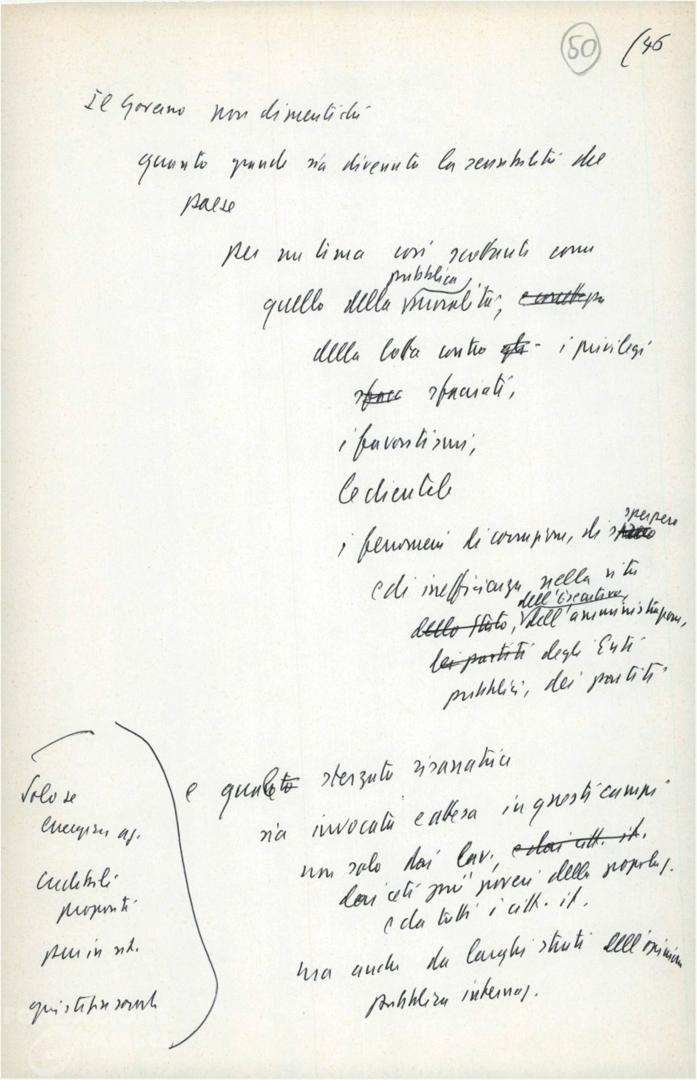 50 (46
Il Governo non dimentichi
quanto grande sia divenuta la sensibilità del
paese
per un tema così scottante come
pubblica
quello della moralità,
della lotta contro gli i privilegi
sfacc sfacciati,
i favoritismi,
le clientele
sperpero
i fenomeni di corruzione, di
e di inefficienza nella vita
dell'esecutivo,
dello Stato, dell'amministrazione,
dei partiti degli Enti
pubblici, dei partiti
e quale sterzata risanatrice
sia invocata e attesa in questi campi
non solo dai lav. e dai citt. it.
dai ceti più poveri della popolaz.
e da tutti i citt. it.
ma anche da larghi strati dell'opinione
pubblica internaz.
Solo se
credibili
propositi